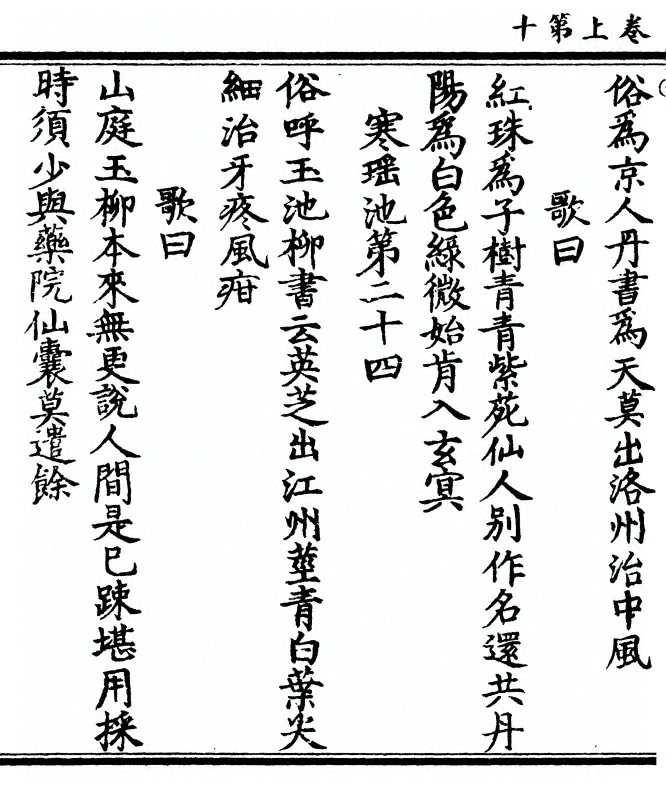 卷上第十
俗爲京人丹書爲天莫出洛州治中風
歌曰
紅珠爲子樹青青紫苑仙人別作名還共丹
陽爲白色綠微始肯入玄㝠
寒瑶池第二十四
俗呼玉池柳書云英芝出江州莖青白葉尖
細治牙疼風疳
歌曰
山庭玉柳本來無更說人間是巳踈堪用採
時須少與藥院仙囊莫遣餘